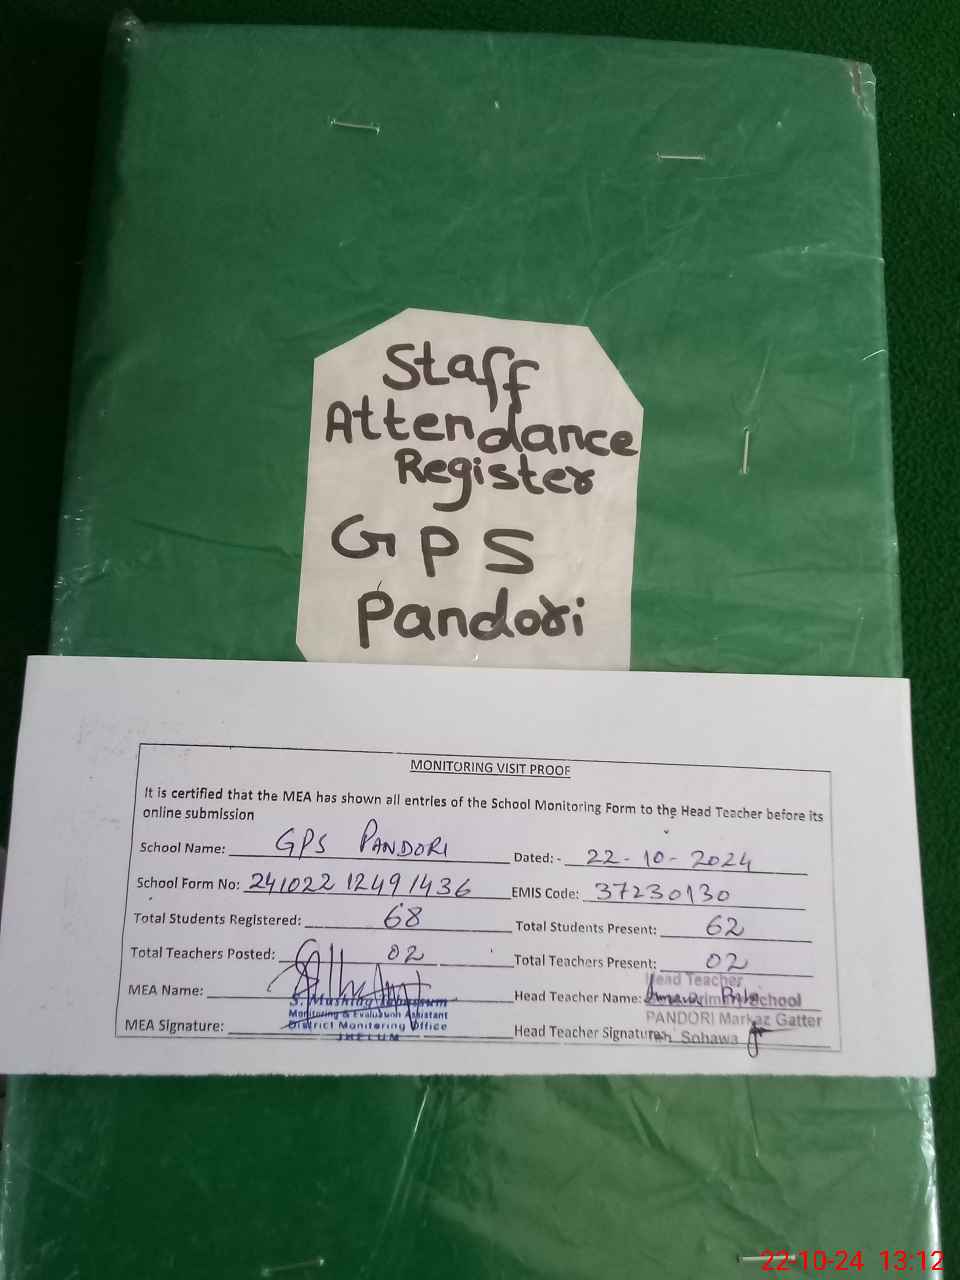 Staff
Attendance
Register
GPS
Pandori
MONITORING VISIT PROOF
It is certified that the MEA has shown all entries of the School Monitoring Form to the Head Teacher before its
online submission
School Name: GPS PANDORI Dated: - 22-10-2024
School Form No: 241022 12491436 EMIS Code: 37230130
Total Students Registered: 68 Total Students Present: 62
Total Teachers Posted: 02 Total Teachers Present: 02
Head Teacher
MEA Name: Head Teacher Name: School
S. Mushtaq
Monitoring & Evaluation Assistant
PANDORI Markaz Gatter
District Monitoring Office
MEA Signature: Head Teacher Signature: Sohawa
JHELUM
22-10-24 13:12